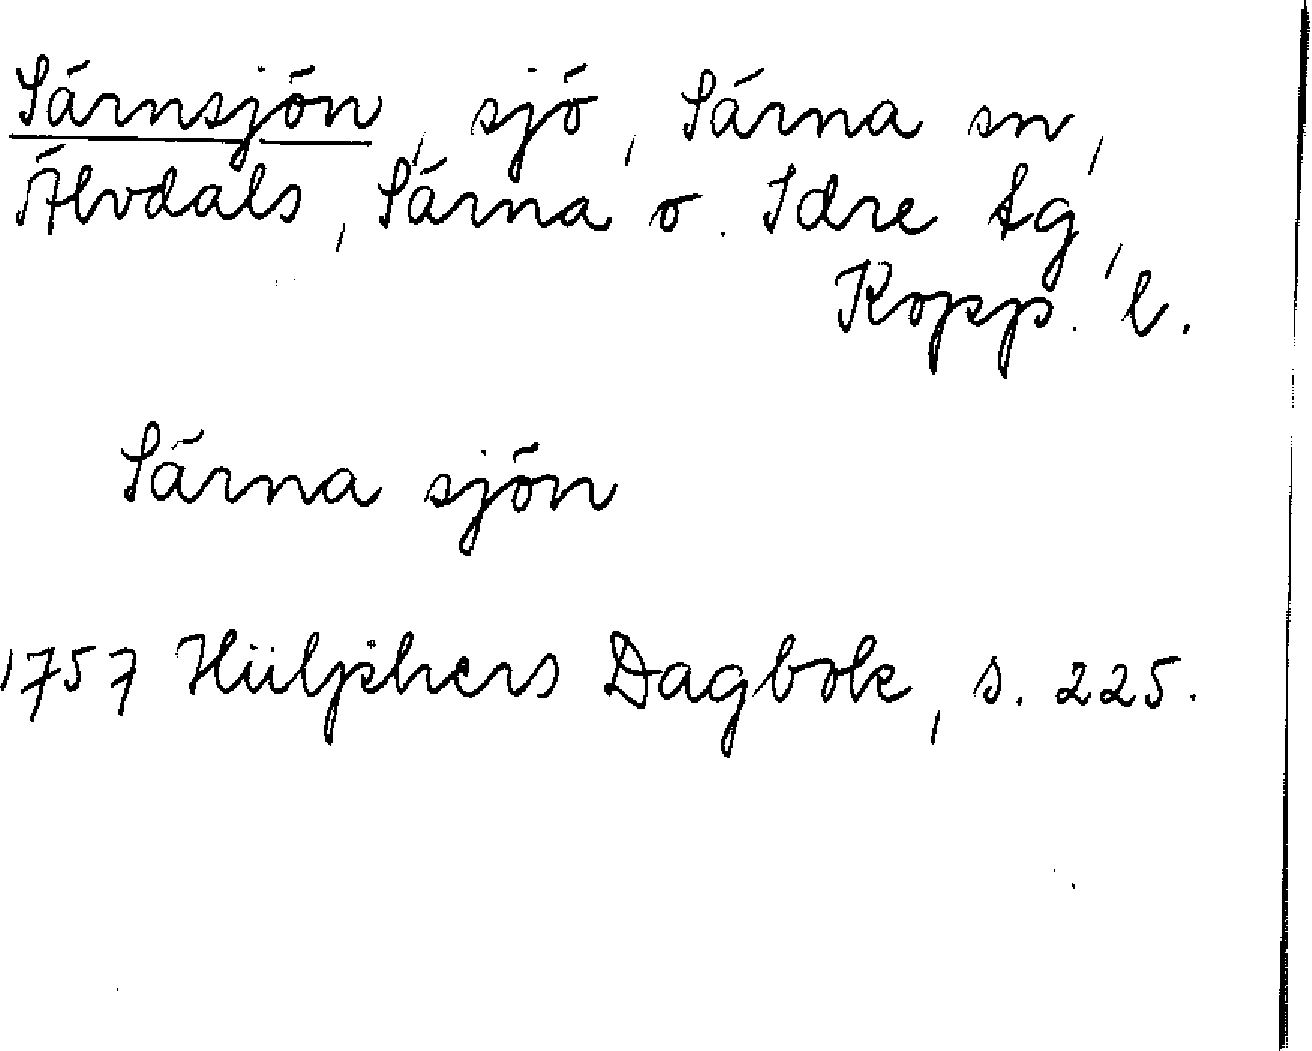 Särnsjön, sjö, Särna sn,
Älvdals, Särna o. Idre tg,
Kopp. l.
Särna sjön
1757 Hülphers Dagbok, s. 225.